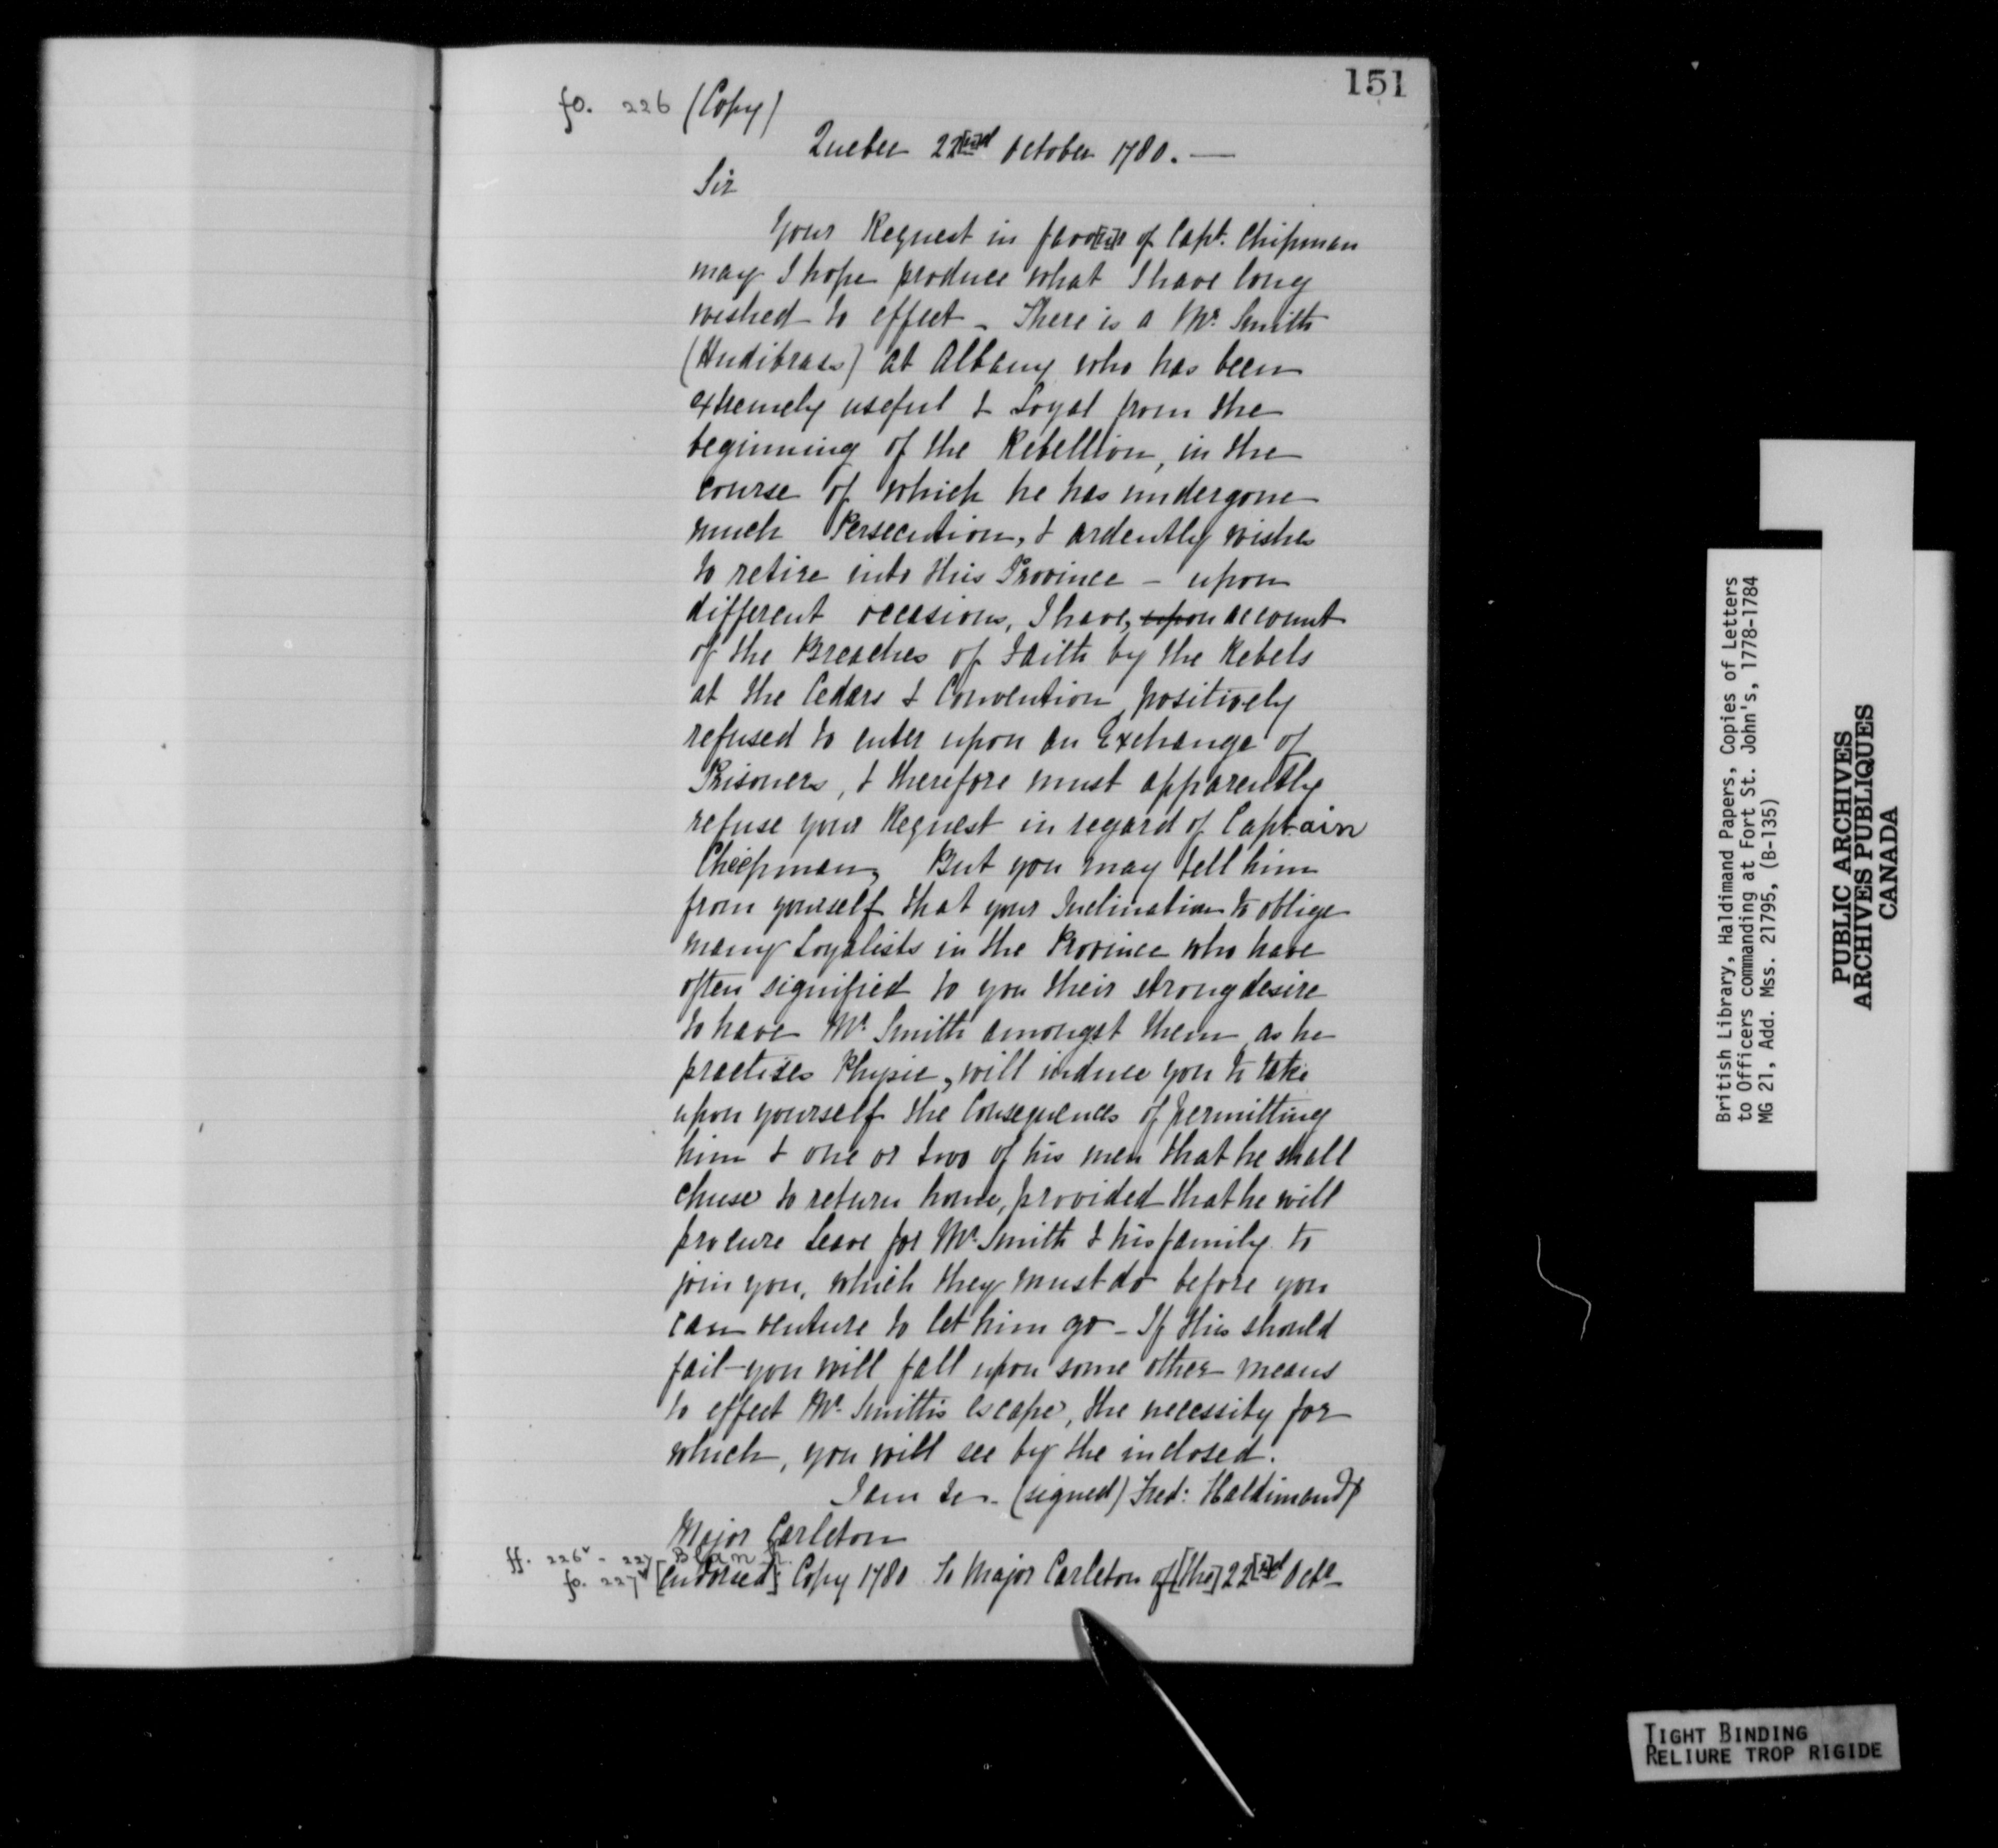 151
fo. 226 (Copy)
Quebec 22[n]d October 1780. —
Sir
Your Request in favo[u]r of Capt. Chipman
may I hope produce what I have long
wished to effect - There is a Mr. Smith
(Hudibrass) at Albany who has been
extremely useful & Loyal from the
beginning of the Rebellion, in the
course of which he has undergone
much Persecution, & ardently wishes
to retire into this Province - upon
different occasions, I have, upon account
of the Breaches of Faith by the Rebels
at the Cedars & Convention, positively
refused to enter upon an Exchange of
Prisoners, & therefore must apparently
refuse your Request in regard of Captain
Chipman, But you may tell him
from yourself that your Inclination to oblige
many Loyalists in the Province who have
often signified to you their strong desire
to have Mr. Smith amongst them, as he
practises Physic, will induce you to take
upon yourself the Consequences of permitting
him & one or two of his men that he shall
chuse to return home, provided that he will
procure Leave for Mr. Smith & his family to
join you, which they must do before you
can venture to let him go - If this should
fail - you will fall upon some other means
to effect Mr. Smith's escape, the necessity for
which, you will see by the inclosed.
I am &c. (signed) Fred: Haldimand
Major Carleton
ff. 226v - 227 Blank.
fo. 227v [Endorsed]: Copy 1780 To Major Carleton of [the] 22[n]d Octr
British Library, Haldimand Papers, Copies of Letters
to Officers commanding at Fort St. John's, 1778-1784
MG 21, Add. Mss. 21795, (B-135)
PUBLIC ARCHIVES
ARCHIVES PUBLIQUES
CANADA
TIGHT BINDING
RELIURE TROP RIGIDE